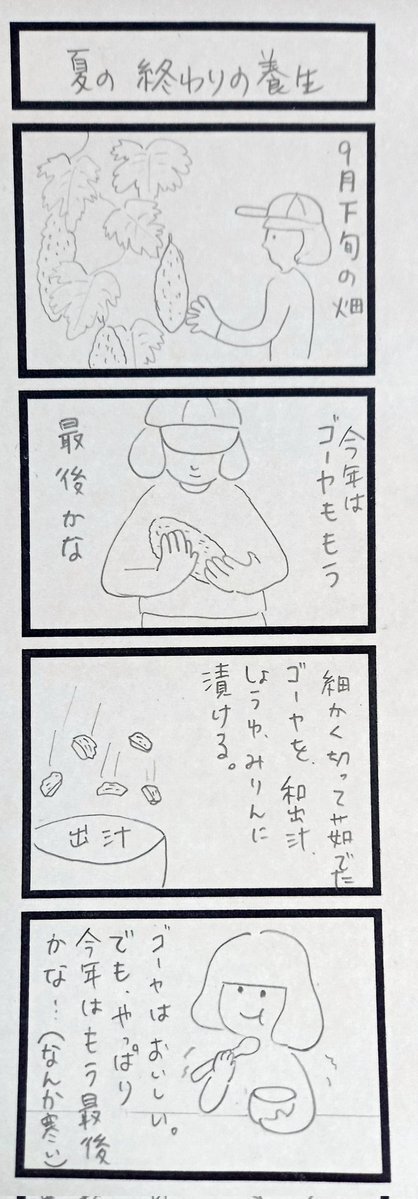 夏の終わりの養生
9月下旬の畑
今年は
ゴーヤももう
最後かな
細かく切って茹でた
ゴーヤを、和出汁、
しょうゆ、みりんに
漬ける。
出汁
ゴーヤはおいしい。
でも、やっぱり
今年はもう最後
かな…(なんか寒い)